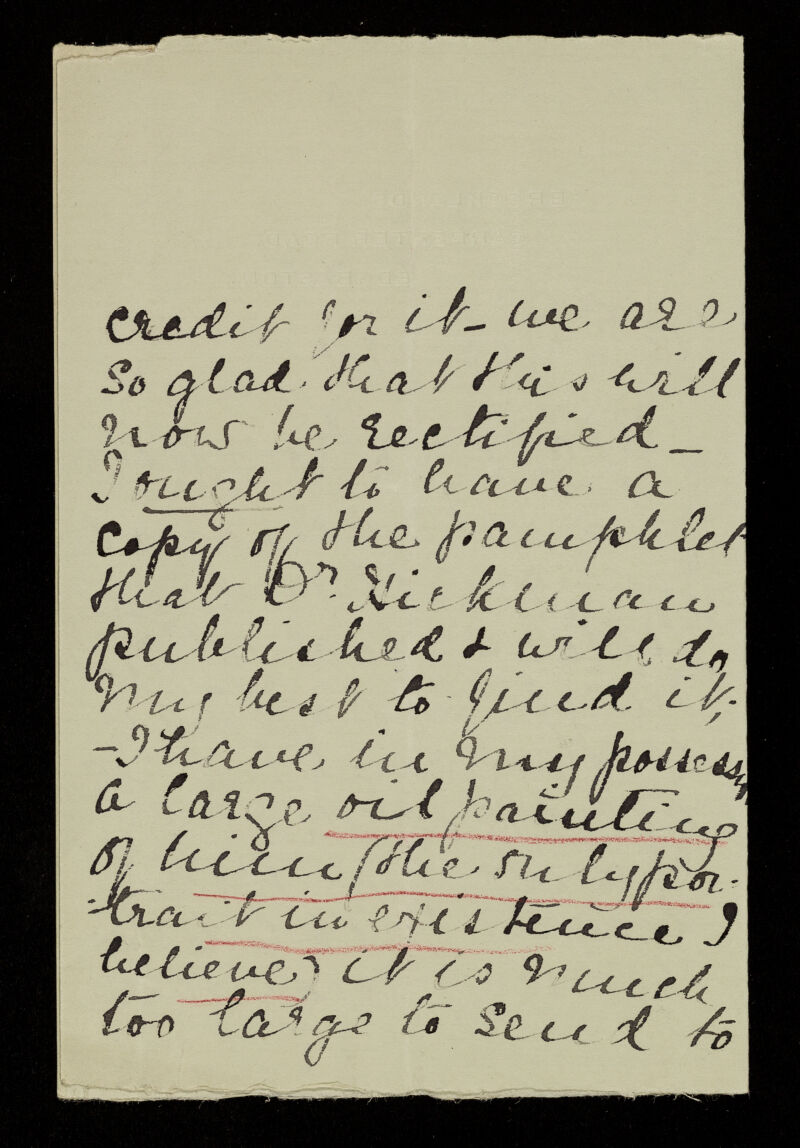 credit for it – we are
so glad that this will
now be rectified –
I ought to have a
copy of the pamphlet
that Dr. Hickman
published & will do
my best to find it;
– I have in my possessn
a large oil painting
of him (the only por-
-trait in existence I
believe) it is much
too large to send to